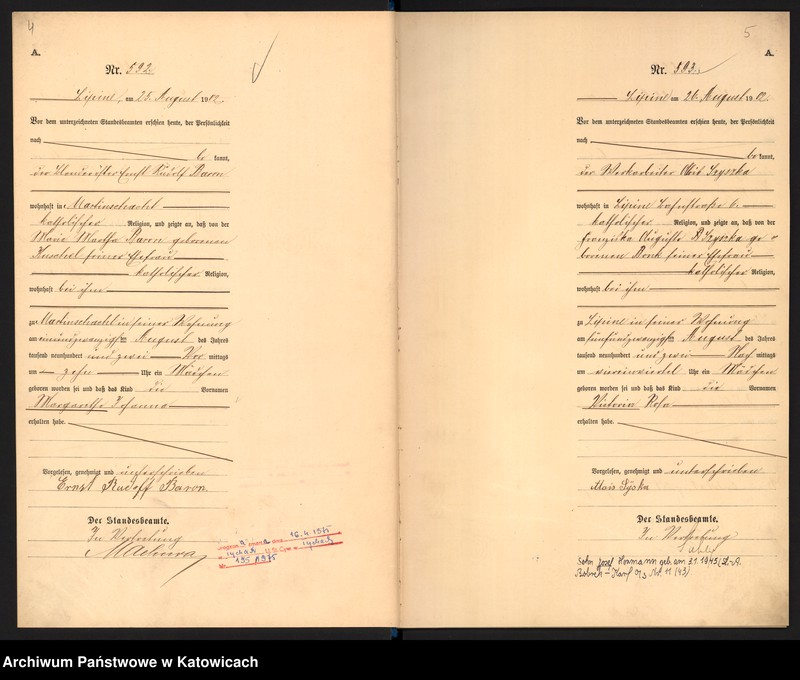 4
A.
Nr. 592.
Lipine, am 25. August 1902.
Vor dem unterzeichneten Standesbeamten erschien heute, der Persönlichkeit
nach
be kannt,
der Ernst Rudolf Baron
wohnhaft in Martinschacht
katholischer Religion, und zeigte an, daß von der
Marie Martha Baron geborenen
seiner Ehefrau
katholischer Religion,
wohnhaft bei ihm
zu Martinschacht in seiner Wohnung
am einundzwanzigsten August des Jahres
tausend neunhundert und zwei Vor mittags
um zehn Uhr ein Mädchen
geboren worden sei und daß das Kind die Vornamen
Margarethe Johanna
erhalten habe.
Vorgelesen, genehmigt und unterschrieben
Ernst Rudolf Baron.
Der Standesbeamte.
In Vertretung
16.4.1975
195 1975
5
A.
Nr. 593.
Lipine am 26. August 1902.
Vor dem unterzeichneten Standesbeamten erschien heute, der Persönlichkeit
nach
be kannt,
der Werkarbeiter Alois
wohnhaft in Lipine Bahnstraße 6
katholischer Religion, und zeigte an, daß von der
Franziska Auguste ge=
borenen seiner Ehefrau
katholischer Religion,
wohnhaft bei ihm
zu Lipine in seiner Wohnung
am fünfundzwanzigsten August des Jahres
tausend neunhundert und zwei Nach mittags
um Uhr ein Mädchen
geboren worden sei und daß das Kind die Vornamen
Viktoria Rosa
erhalten habe.
Vorgelesen, genehmigt und unterschrieben
Alois
Der Standesbeamte.
In Vertretung
Sohn Josef Hermann geb. am 3.1.1943 St.-A.
Bobrek-Karf Nr. 11 (43)
Archiwum Państwowe w Katowicach